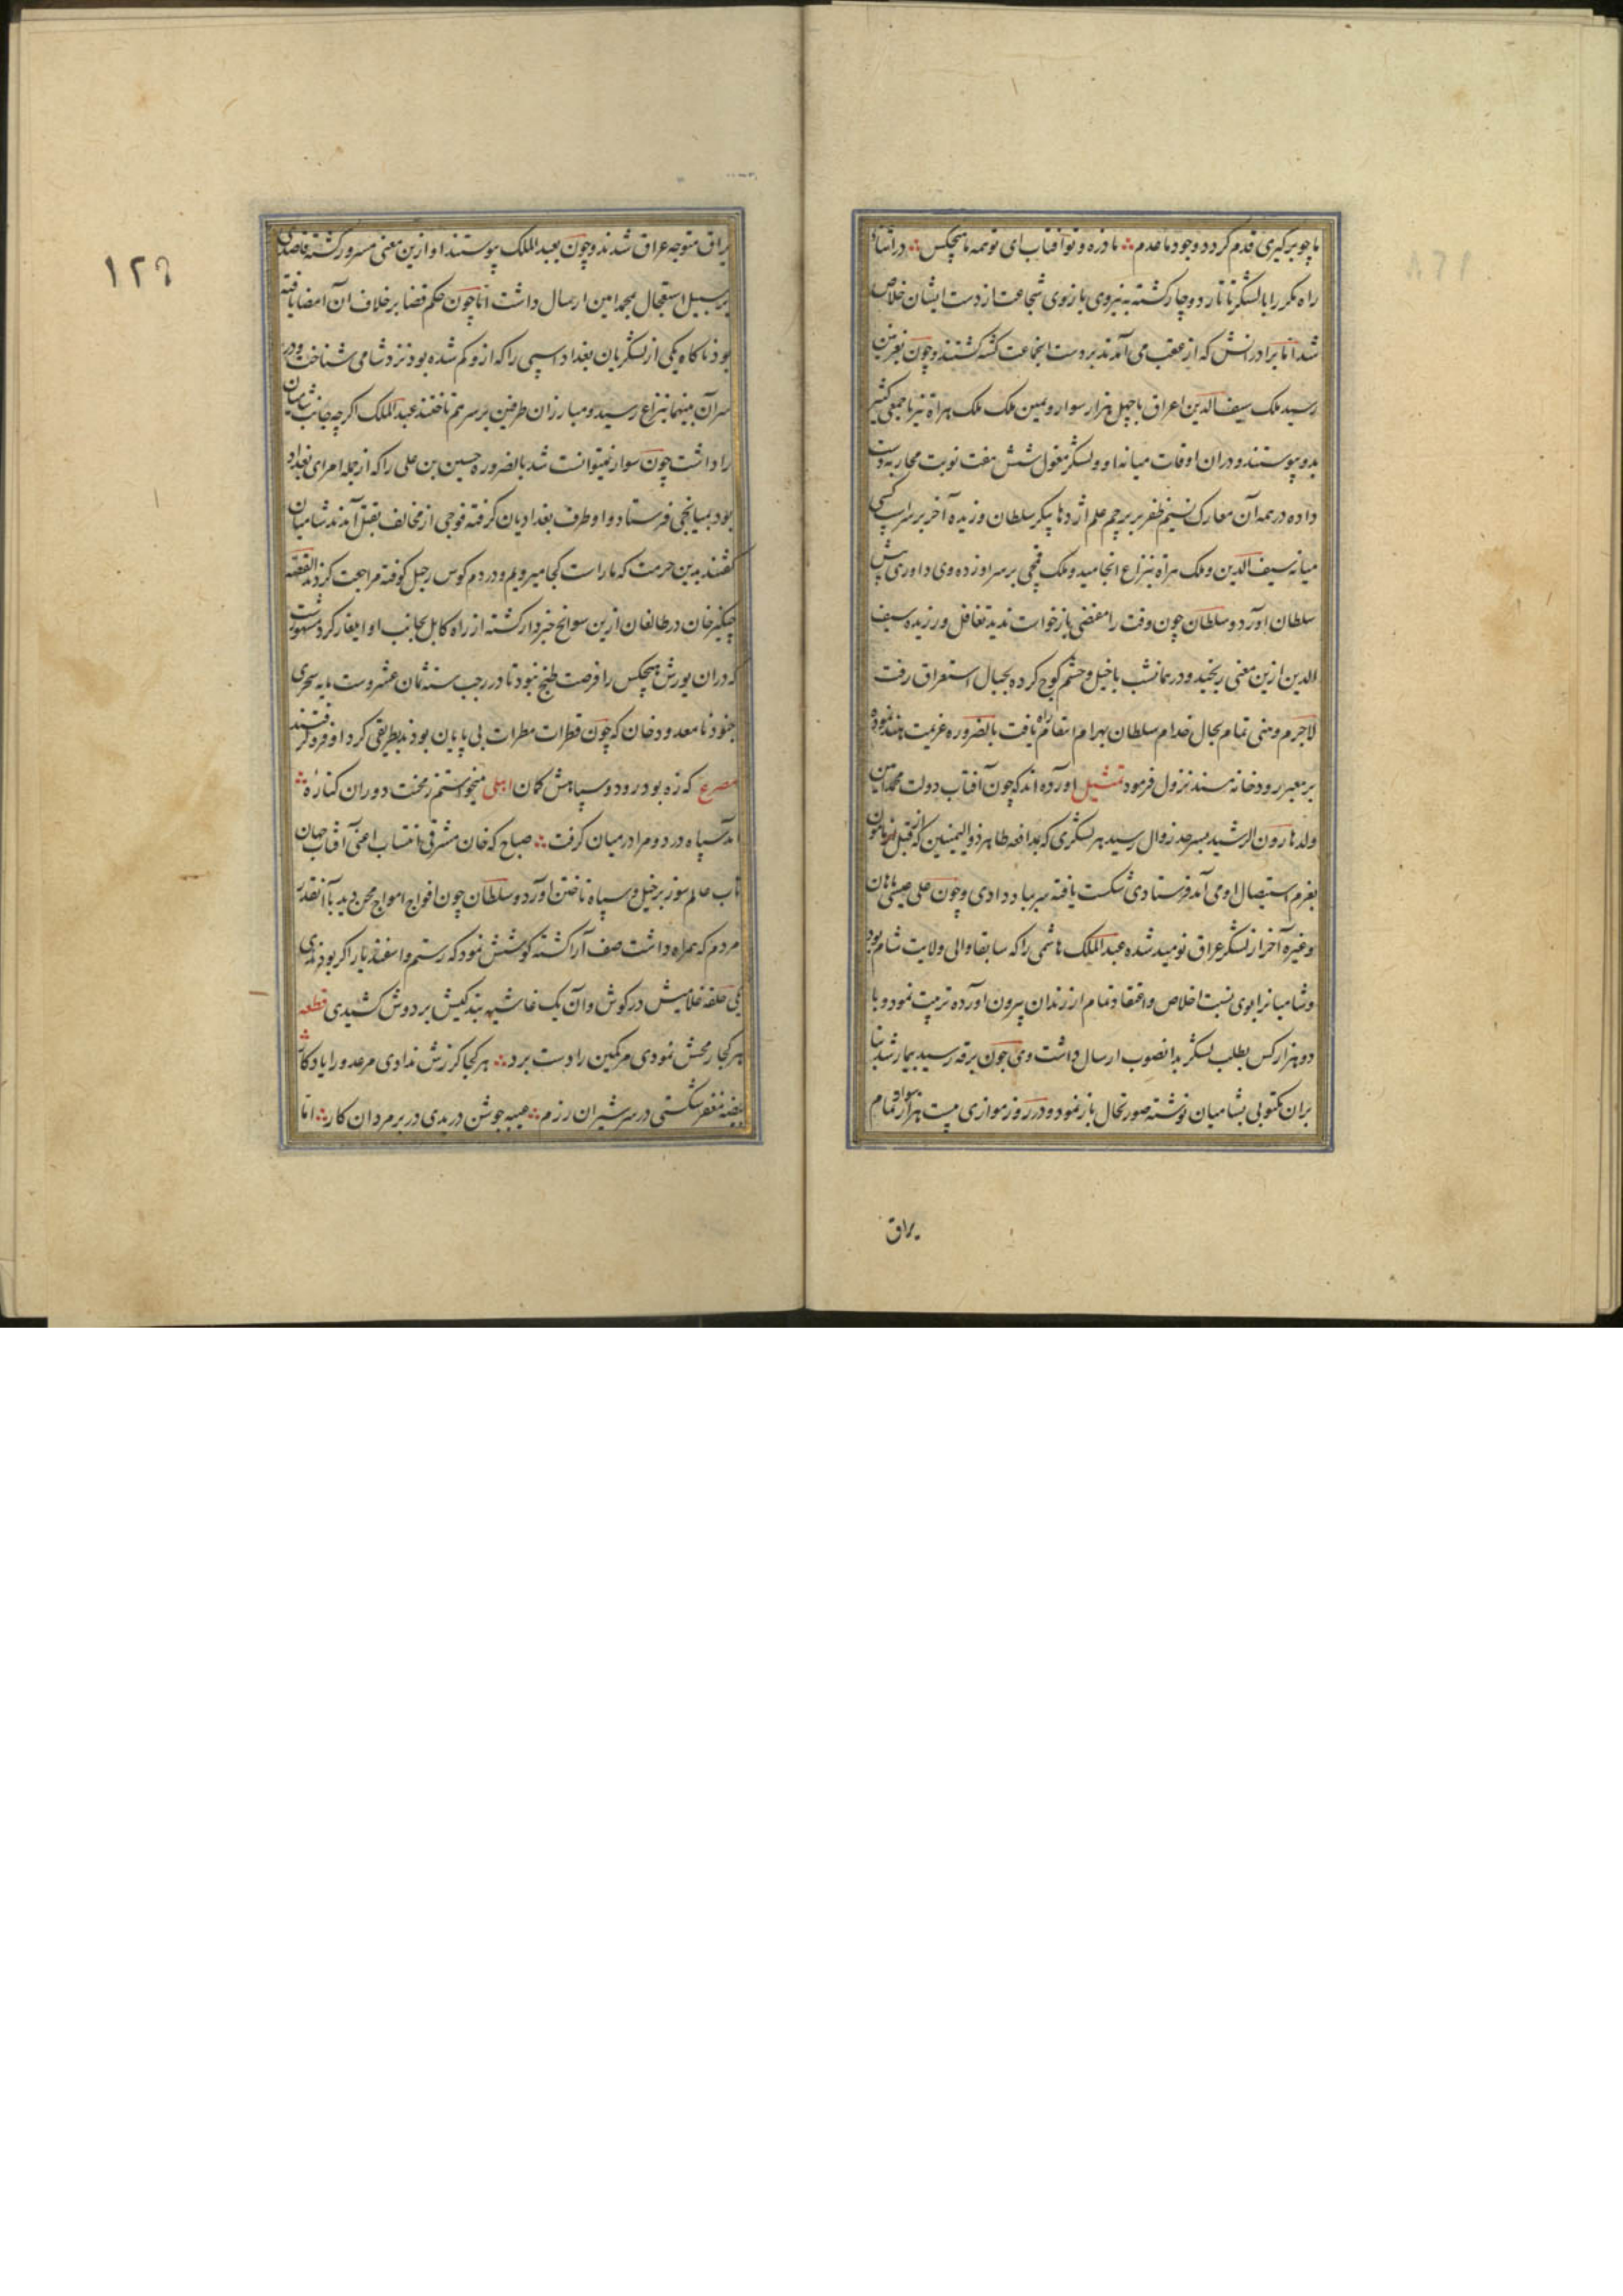 ما چو برگیری قدم گردد وجود ما عدم ما ذره و تو آفتاب ای تو همه ما هیچکس در اثنای
راه مکرر با لشکر تاتار دوچار گشته به نیروی بازوی شجاعت از دست ایشان خلاص
شد اما برادرانش که از عقب می آمدند بر دست انجماعت کشته گشتند و چون بغزنین
رسید ملک سیف الدین اعراق با چهل هزار سوار و یمین ملک ملک هراة نیز با جمعی کثیر
بدو پیوستند و در آن اوقات میانه او و لشکر مغول شش هفت نوبت محاربه دست
داده در همه آن معارک نسیم ظفر بر پرچم علم اژدها پیکر سلطان وزیده آخر بر سر اسپی
میانه سیف الدین و ملک هراة بنزاع انجامید و ملک قمچی بر سر او زده وی داوری پیش
سلطان آورد و سلطان چون وقت را مقتضی بازخواست ندید تغافل ورزیده سیف
الدین ازین معنی رنجید و در همانشب با خیل و حشم کوچ کرده بجبال استعراق رفت
لاجرم وهنی تمام بحال خدام سلطان بهرام انتقام راه یافت بالضروره عزیمت هند نموده
بر معبر رودخانه سند نزول فرمود تمثیل آورده اند که چون آفتاب دولت محمد امین
ولد هارون الرشید بسرحد زوال رسید هر لشکری که بمدافعه طاهر ذو الیمینین که از قبل مامون
بعزم استیصال او می آمد فرستادی شکست یافته سر بباد دادی و چون علی عیسی ماهان
و غیره آخر از لشکر عراق نومید شده عبد الملک هاشمی را که سابقا والی ولایت شام بود
و شامیانرا بوی نسبت اخلاص و اعتقاد تمام از زندان بیرون آورده تربیت نمود و با
دو هزار کس بطلب لشکر بدانصوب ارسال داشت وی چون برقه رسید بیمار شد بنا
بران مکتوبی بشامیان نوشته صورتحال باز نمود و در روز موازی بیست هزار سوار تمام
یراق
۱۲۹
یراق متوجه عراق شدند و چون بعبد الملک پیوستند او ازین معنی مسرور گشته قاصدی
بر سبیل استعجال بمحمد امین ارسال داشت اما چون حکم قضا بر خلاف آن امضا یافته
بود ناگاه یکی از لشکریان بغداد اسپی را که از و گم شده بود نزد شامی شناخت و در
سر آن بینهما بنزاع رسید و مبارزان طرفین بر سر هم تاختند عبد الملک اگرچه جانب شامیان
را داشت چون سوار نمیتوانست شد بالضروره حسین بن علی را که از جمله امرای بغداد
بود بمیانجی فرستاد و او طرف بغدادیان گرفته فوجی از مخالف بقتل آمدند شامیان
گفتند بدین حرمت که ما راست کجا میرویم و در دم کوس رحیل کوفته مراجعت کردند القصه
چنگیز خان در طالقان ازین سوانح خبردار گشته از راه کابل بجانب او ایلغار کرد مشهورست
که در ان یورش هیچکس را فرصت طبخ نبود تا در رجب سنه ثمان عشر و ستمایه سحری
جنود نامعدود خان که چون قطرات مطرات بی پایان بودند بطریقی گرد او فرو گرفتند
مصرع که زه بود رود و سپاهش کمان ابیلی میخواستم ز محنت دوران کناره
آمد سپاه درد و مرا در میان گرفت صباح که خان مشرقی انتساب اعنی آفتاب جهان
تاب علم سوز بر خیل و سپاه تاختن آورد و سلطان چون افواج امواج محن دید با آنقدر
مردم که همراه داشت صف آرا گشته کوشش نمود که رستم و اسفندیار اگر بودندی
یکی حلقه غلامیش در گوش و آن یک غاشیه بندگیش بر دوش کشیدی قطعه
هر کجا رمحش نمودی مر یکین را دست برد هر کجا گرزش ندادی مر عدو را یادگار
بیضه مغفر شکستی در سر شیران رزم عیبه جوشن دریدی در بر مردان کار اما